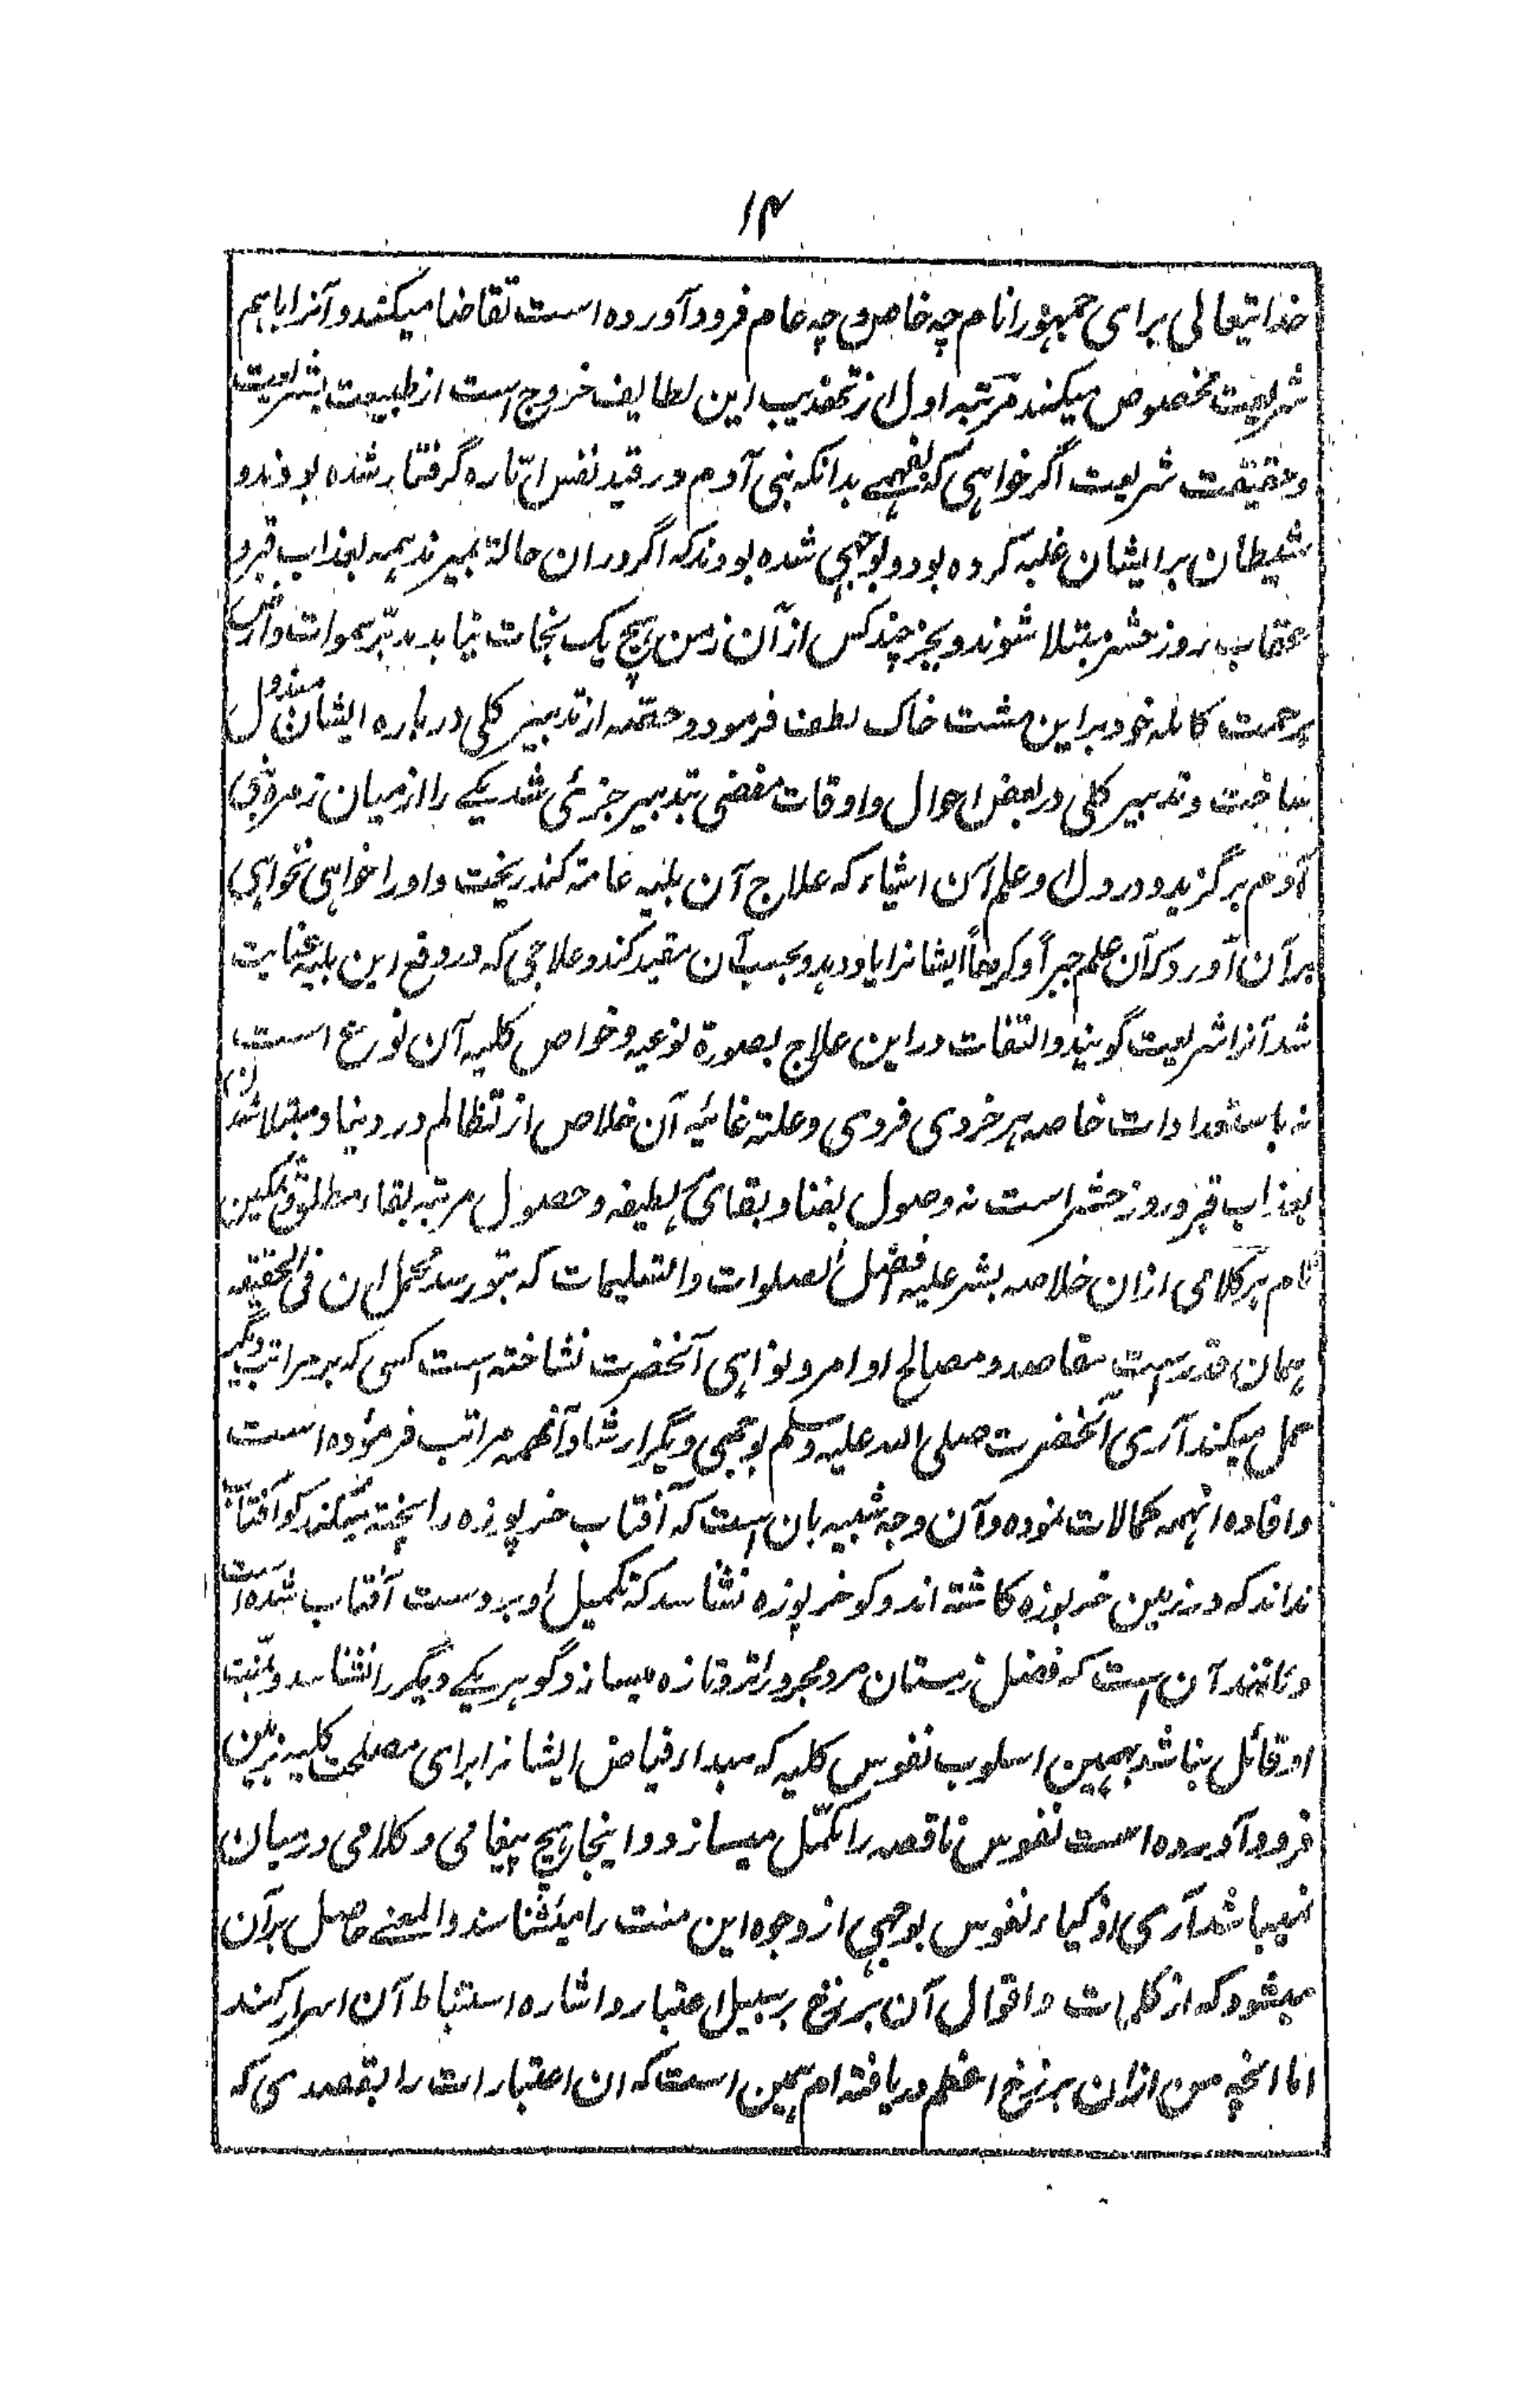 ۱۴
خدایتعالی برای جمهور انام چه خاص و چه عام فرود آورده است تقاضا میکنند و آنرا باسم
شریعت مخصوص میکنند مرتبه اول از تهذیب این لطایف خروج است از طبیعت بشریعت
و حقیقت شریعت اگر خواهی که بفهمے بدانکه بنی آدم در قید نفس امّاره گرفتار شده بودند و
شیطان بر ایشان غلبه کرده بود و بوجهی شده بودند که اگر دران حالة بمیرند همه بعذاب قبر و
عقاب روز حشر مبتلا شوند و بجز چند کس از آن زمن هیچ یک نجات نیابد مدبّر سموات وارض
برحمت کامله خود بر این مشت خاک لطف فرمود و حصّه از تدبیر کلی درباره ایشان مبذول
ساخت و تدبیر کلی در بعض احوال و اوقات مفضی بتدبیر جزئی شد یکے را از میان زمرهٔ بنی
آدم برگزید و در دل او علم آن اشیاء که علاج آن بلیه عامّه کند ریخت و او را خواهی نخواهی
بر آن آورد که آن علم جبراً و کرهاً ایشانرا یاد دهد و بحسب آن مقید کند و علاجی که در دفع این بلیه عنایت
شد آنرا شریعت گویند و التفات در این علاج بصورة نوعیه و خواص کلیه آن نوع است
نه باستعدادات خاصه هر فردی فردی و علته غائیه آن خلاص از تظالم در دنیا و مبتلا شدن
بعذاب قبر و روز حشر است نه وصول بفنا و بقای هر لطیفه و حصول مرتبه بقاء مطلق و تمکین
تام هر کلامی از ان خلاصه بشر علیه افضل الصلوات والتسلیمات که بتو رسد محمل ان فی الحقیقه
همان قدر است مقاصد و مصالح اوامر و نواهی آنحضرت نشناخته است کسی که بر مراتب دیگر
حمل میکند آری آنحضرت صلی الله علیه وسلم بوجهی دیگر ارشاد آنهمه مراتب فرموده است
وافاده انهمه کمالات نموده و آن وجه شبیه بان است که آفتاب خرپوزه را پخته میکند کو آفتاب
نداند که در زمین خرپوزه کاشته اند و کو خرپوزه نشناسد که تکمیل او بر دست آفتاب شده است
و مانند آن است که فصل زمستان مرد محرور را تر و تازه میسازد گو هر یکے دیگر را نشناسد و بمنّت
او قائل نباشد بهمین اسلوب نفوس کلیه که مبدء فیاض ایشانرا برای مصلحت کلیه بزمین
فرود آورده است نفوس ناقصه را مکمّل میسازد و اینجا هیچ پیغامی و کلامی درمیان
نمیباشد آری اذکیاء نفوس بوجهی از وجوه این منت را میشناسند و المعنے حاصل بر آن
میشود که از کلمات و اقوال آن برزخ بر سبیل اعتبار و اشاره استنباط آن اسرار کنند
اما انچه من ازان برزخ اعظم دریافته ام همین است که ان اعتبارات را بقصدی که